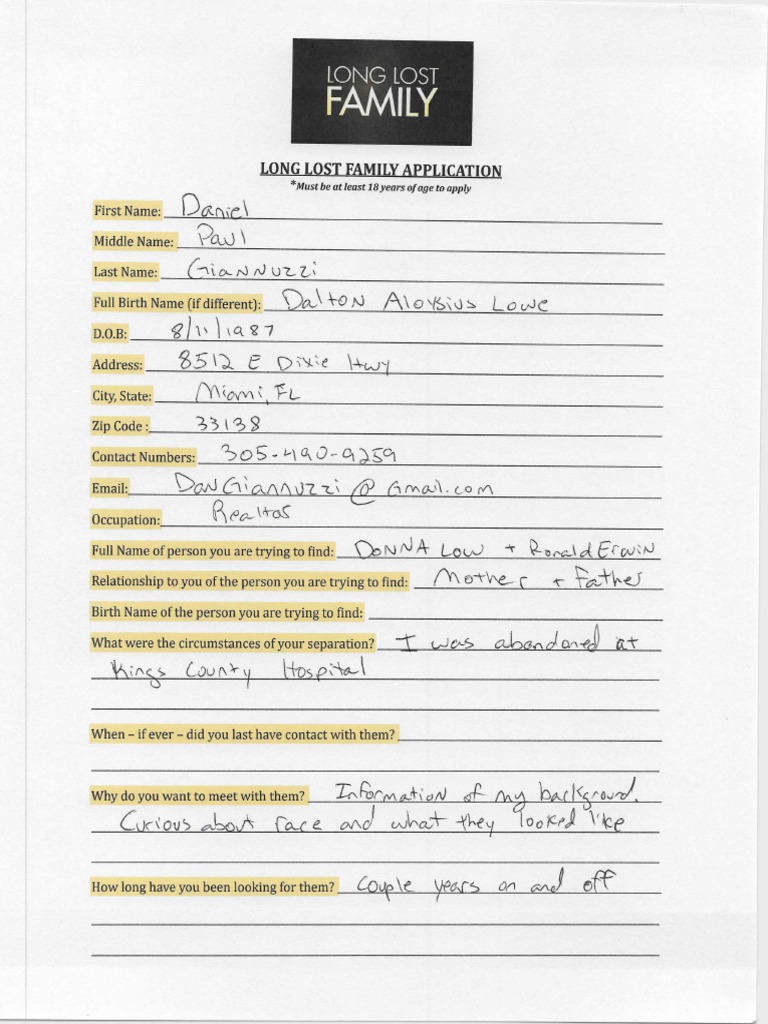 LONG LOST
FAMILY
LONG LOST FAMILY APPLICATION
*Must be at least 18 years of age to apply
First Name: Daniel
Middle Name: Paul
Last Name: Giannuzzi
Full Birth Name (if different): Dalton Aloysius Lowe
D.O.B: 8/11/1987
Address: 8512 E Dixie Hwy
City, State: Miami, FL
Zip Code : 33138
Contact Numbers: 305-490-9259
Email: DanGiannuzzi@Gmail.com
Occupation: Realtor
Full Name of person you are trying to find: DONNA LOW + Ronald Erwin
Relationship to you of the person you are trying to find: Mother + Father
Birth Name of the person you are trying to find:
What were the circumstances of your separation? I was abandoned at
Kings County Hospital
When – if ever – did you last have contact with them?
Why do you want to meet with them? Information of my background.
Curious about race and what they looked like
How long have you been looking for them? Couple years on and off